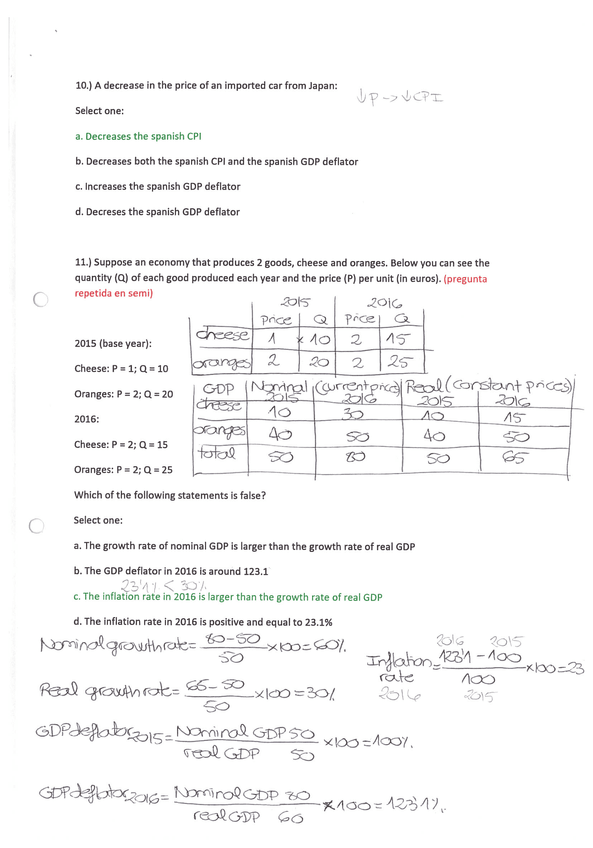 10.) A decrease in the price of an imported car from Japan:
↓P -> ↓CPI
Select one:
a. Decreases the spanish CPI
b. Decreases both the spanish CPI and the spanish GDP deflator
c. Increases the spanish GDP deflator
d. Decreses the spanish GDP deflator
11.) Suppose an economy that produces 2 goods, cheese and oranges. Below you can see the
quantity (Q) of each good produced each year and the price (P) per unit (in euros). (pregunta
repetida en semi)
2015 2016
Price Q Price Q
cheese 1 x 10 2 15
oranges 2 20 2 25
2015 (base year):
Cheese: P = 1; Q = 10
Oranges: P = 2; Q = 20
2016:
Cheese: P = 2; Q = 15
Oranges: P = 2; Q = 25
GDP Nominal (current prices) Real (constant prices)
2015 2016 2015 2016
cheese 10 30 10 15
oranges 40 50 40 50
total 50 80 50 65
Which of the following statements is false?
Select one:
a. The growth rate of nominal GDP is larger than the growth rate of real GDP
b. The GDP deflator in 2016 is around 123.1
23'1% < 30%
c. The inflation rate in 2016 is larger than the growth rate of real GDP
d. The inflation rate in 2016 is positive and equal to 23.1%
Nominal growth rate = 80-50 / 50 x100 = 60%
Inflation rate 2016 = 123'1 - 100 / 100 x100 = 23
2016 2015
2015
Real growth rate = 65-50 / 50 x100 = 30%
GDP deflator 2015 = Nominal GDP 50 / real GDP 50 x100 = 100%
GDP deflator 2016 = Nominal GDP 80 / real GDP 60 x100 = 123'1%